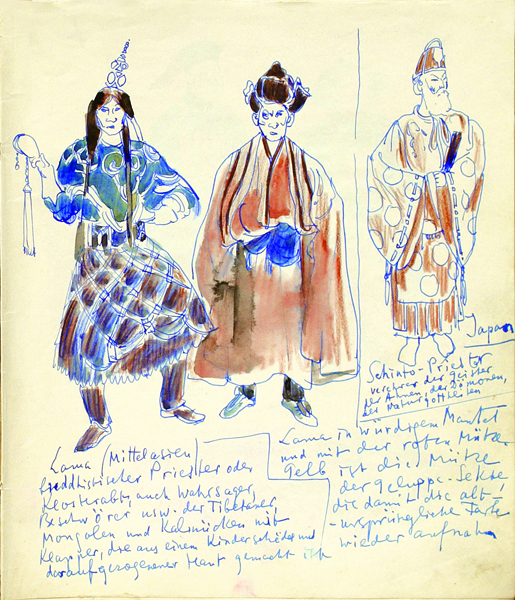 Japan
Schinto-Priester
verehrer der Geister
der Ahnen, der Dämonen,
der Naturgottheiten
Lama (Mittelasien
buddhistischer Priester oder
Klosterabt, auch Wahrsager,
Beschwörer usw. der Tibetaner,
Mongolen und Kalmücken mit
Klapper, die aus einem Kinderschädel und
darauf gezogener Haut gemacht ist
Lama in würdigem Mantel
und mit der roten Mütze
Gelb ist die Mütze
der Geluppe-Sekte
die damit die alt-
-ursprüngliche Farbe
wieder aufnahm